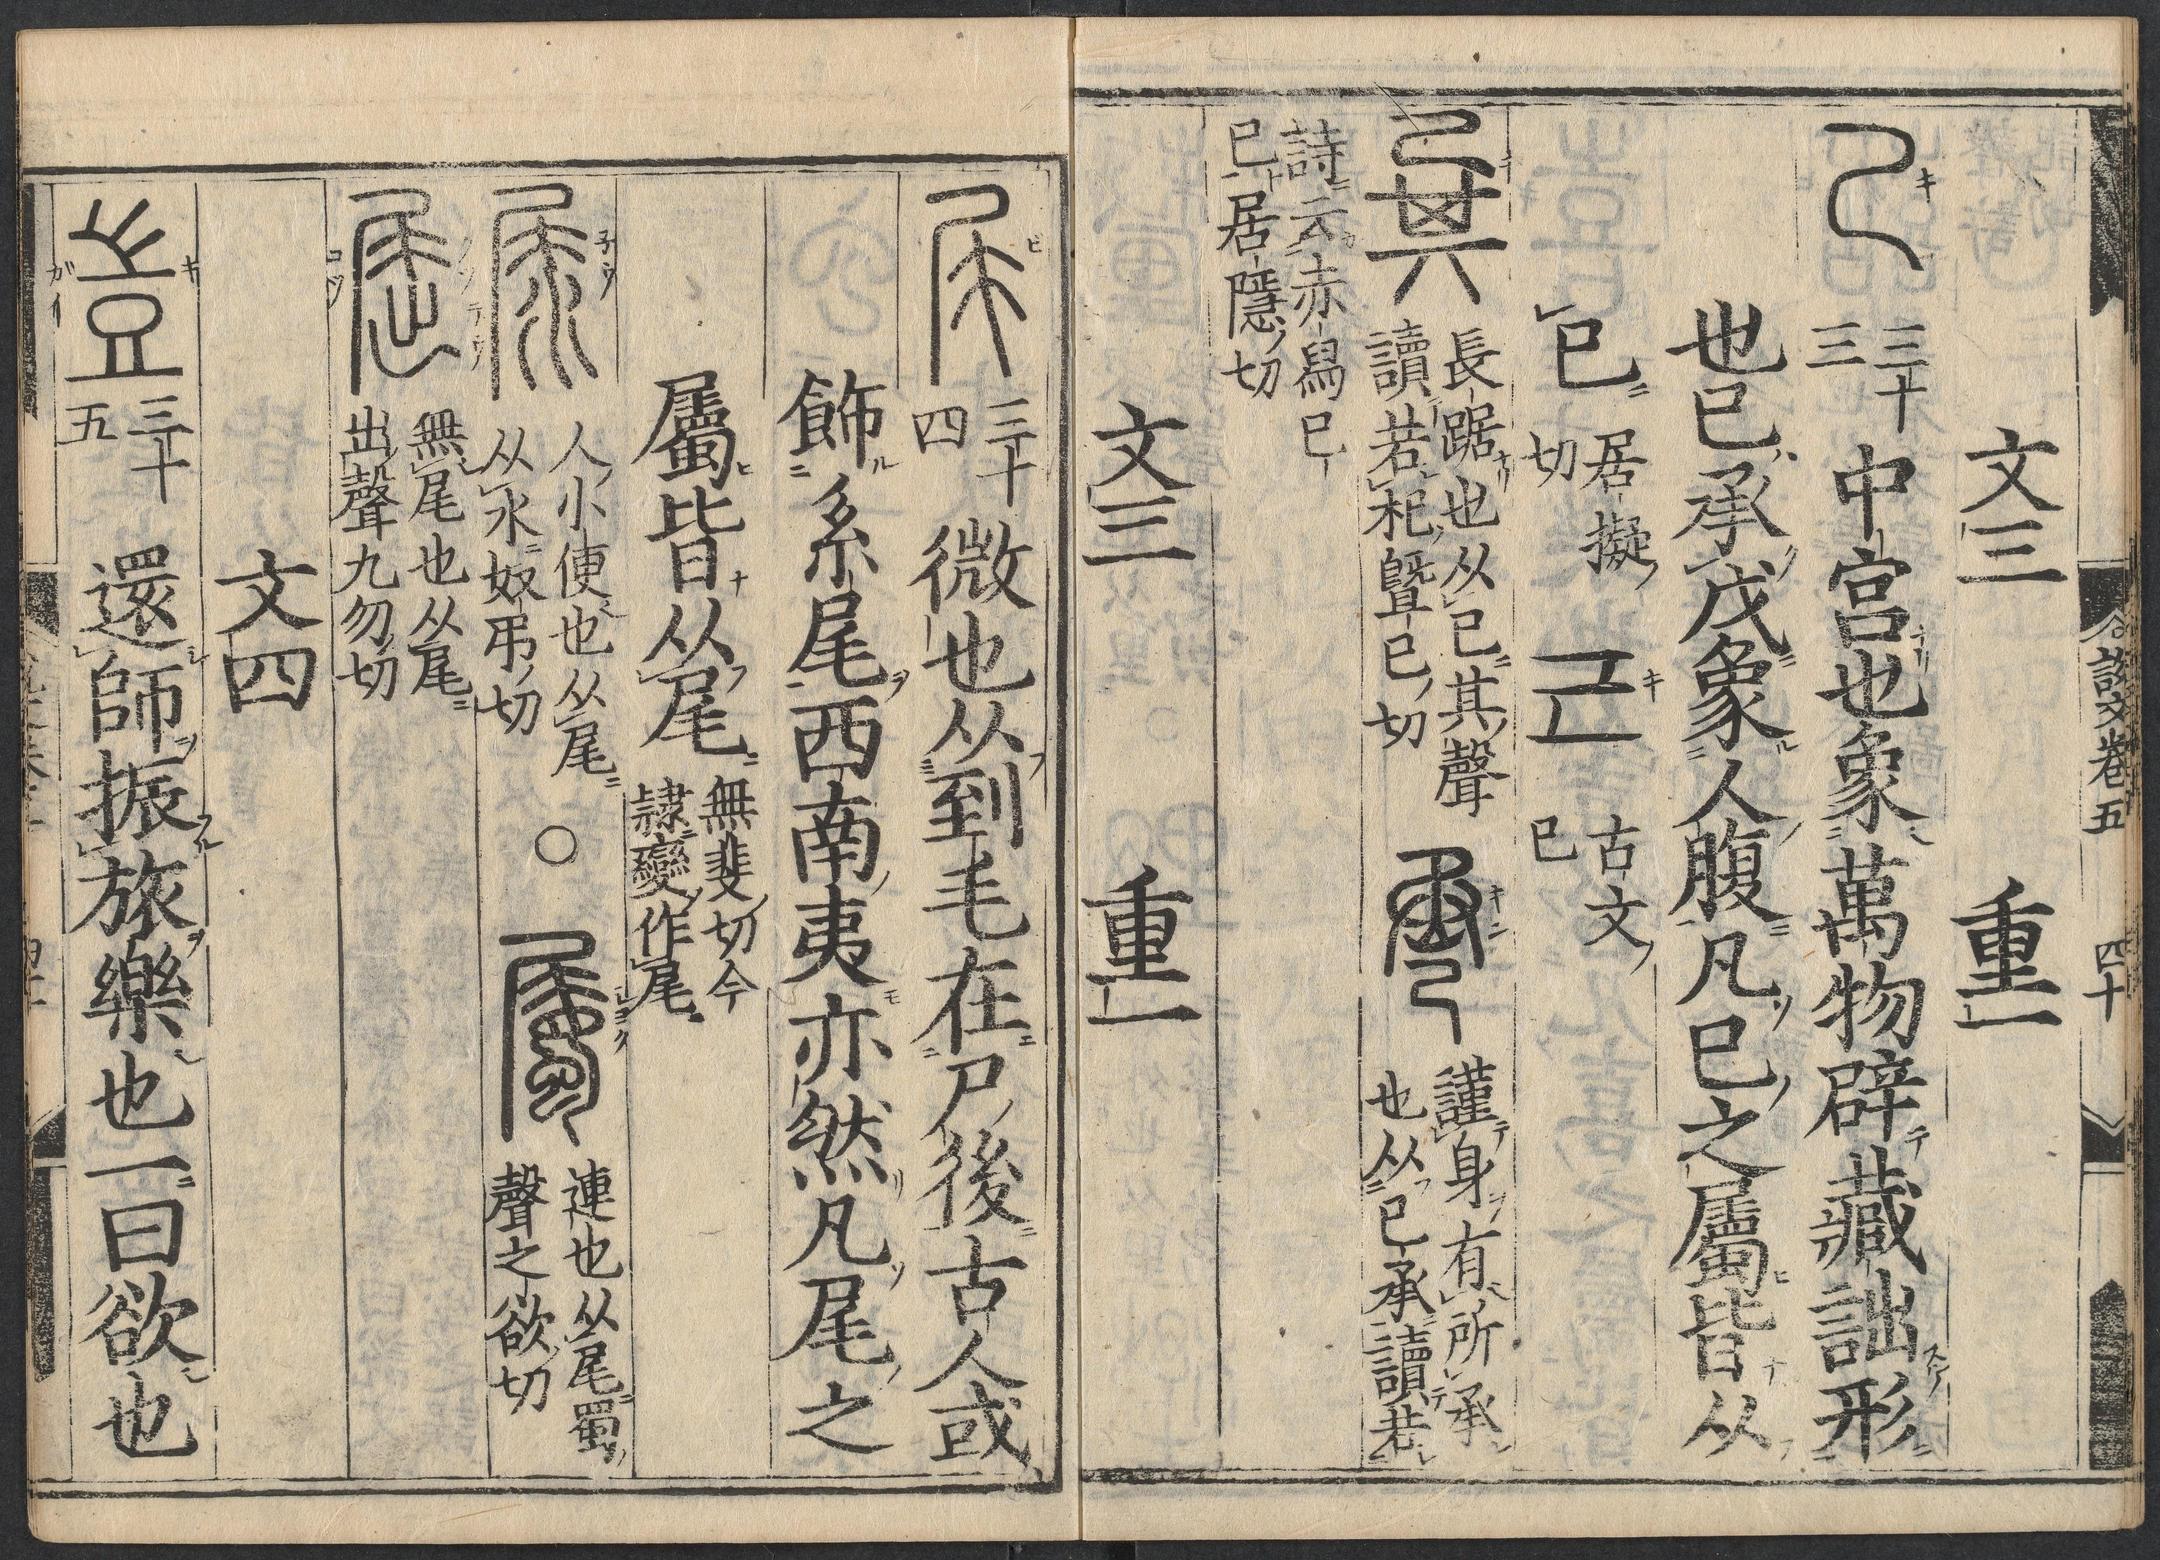 說文卷五 四十
文三 重一
三十三 中宮也象萬物辟藏詘形
也已承戊象人腹凡已之屬皆从
已 居擬切 古文已
長踞也从已其聲讀若杞曁已切 謹身有所承也从已承讀若
詩云赤舃已已居隱切
文三 重一
三十四 微也从到毛在尸後古人或
飾系尾西南夷亦然凡尾之
屬皆从尾 無斐切今隷變作尾
人小便也从尾从水奴弔切 ○ 連也从尾蜀聲之欲切
無尾也从尾出聲九勿切
文四
三十五 還師振旅樂也一曰欲也